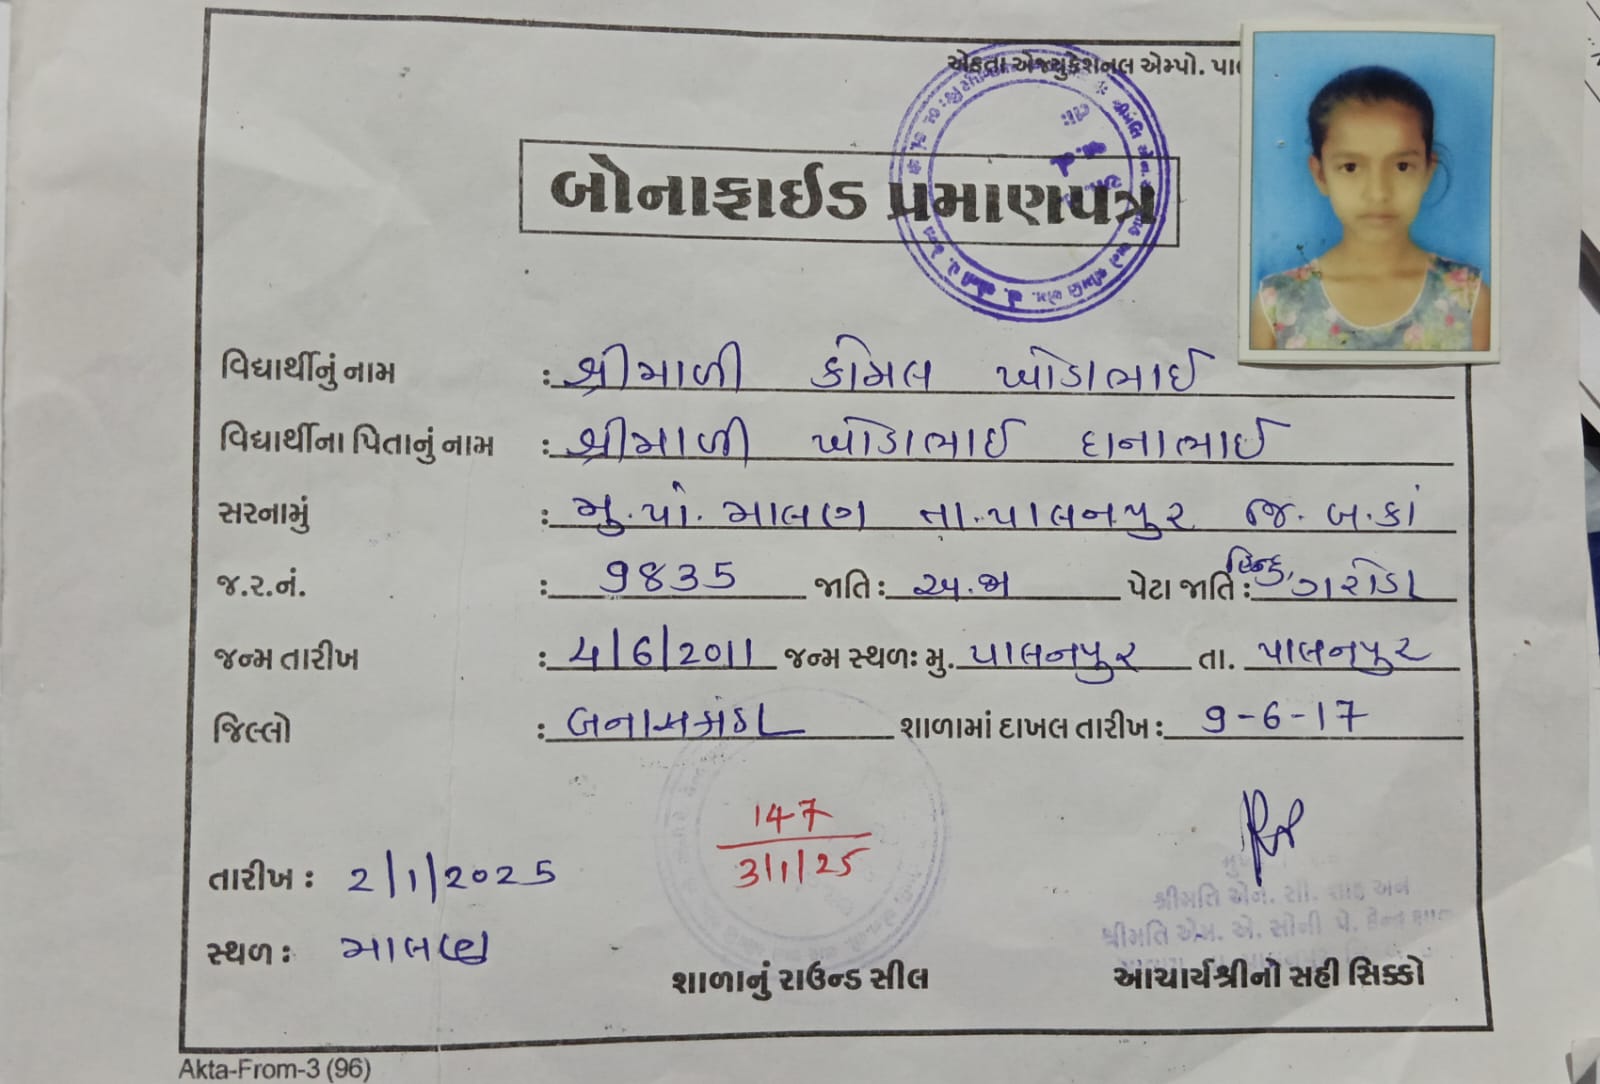 એકતા એજ્યુકેશનલ એમ્પો. પા
બોનાફાઈડ પ્રમાણપત્ર
વિદ્યાર્થીનું નામ : શ્રીમાળી કોમલ ખોડાભાઈ
વિદ્યાર્થીના પિતાનું નામ : શ્રીમાળી ખોડાભાઈ દાનાભાઈ
સરનામું : મુ.પો. માલણ તા.પાલનપુર જિ. બ.કાં
જ.ર.નં. : ૧૪૩૫ જાતિ : અ.જા પેટા જાતિ : હિન્દુ, ગરોડા
જન્મ તારીખ : 4/6/2011 જન્મ સ્થળઃ મુ. પાલનપુર તા. પાલનપુર
જિલ્લો : બનાસકાંઠા શાળામાં દાખલ તારીખ : 9-6-17
147
3/1/25
તારીખ : 2/1/2025
સ્થળ : માલણ
શ્રીમતિ એન. સી. શાહ અને
શ્રીમતિ એમ. એ. સોની પે. કેન્દ્ર
શાળાનું રાઉન્ડ સીલ
આચાર્યશ્રીનો સહી સિક્કો
Akta-From-3 (96)